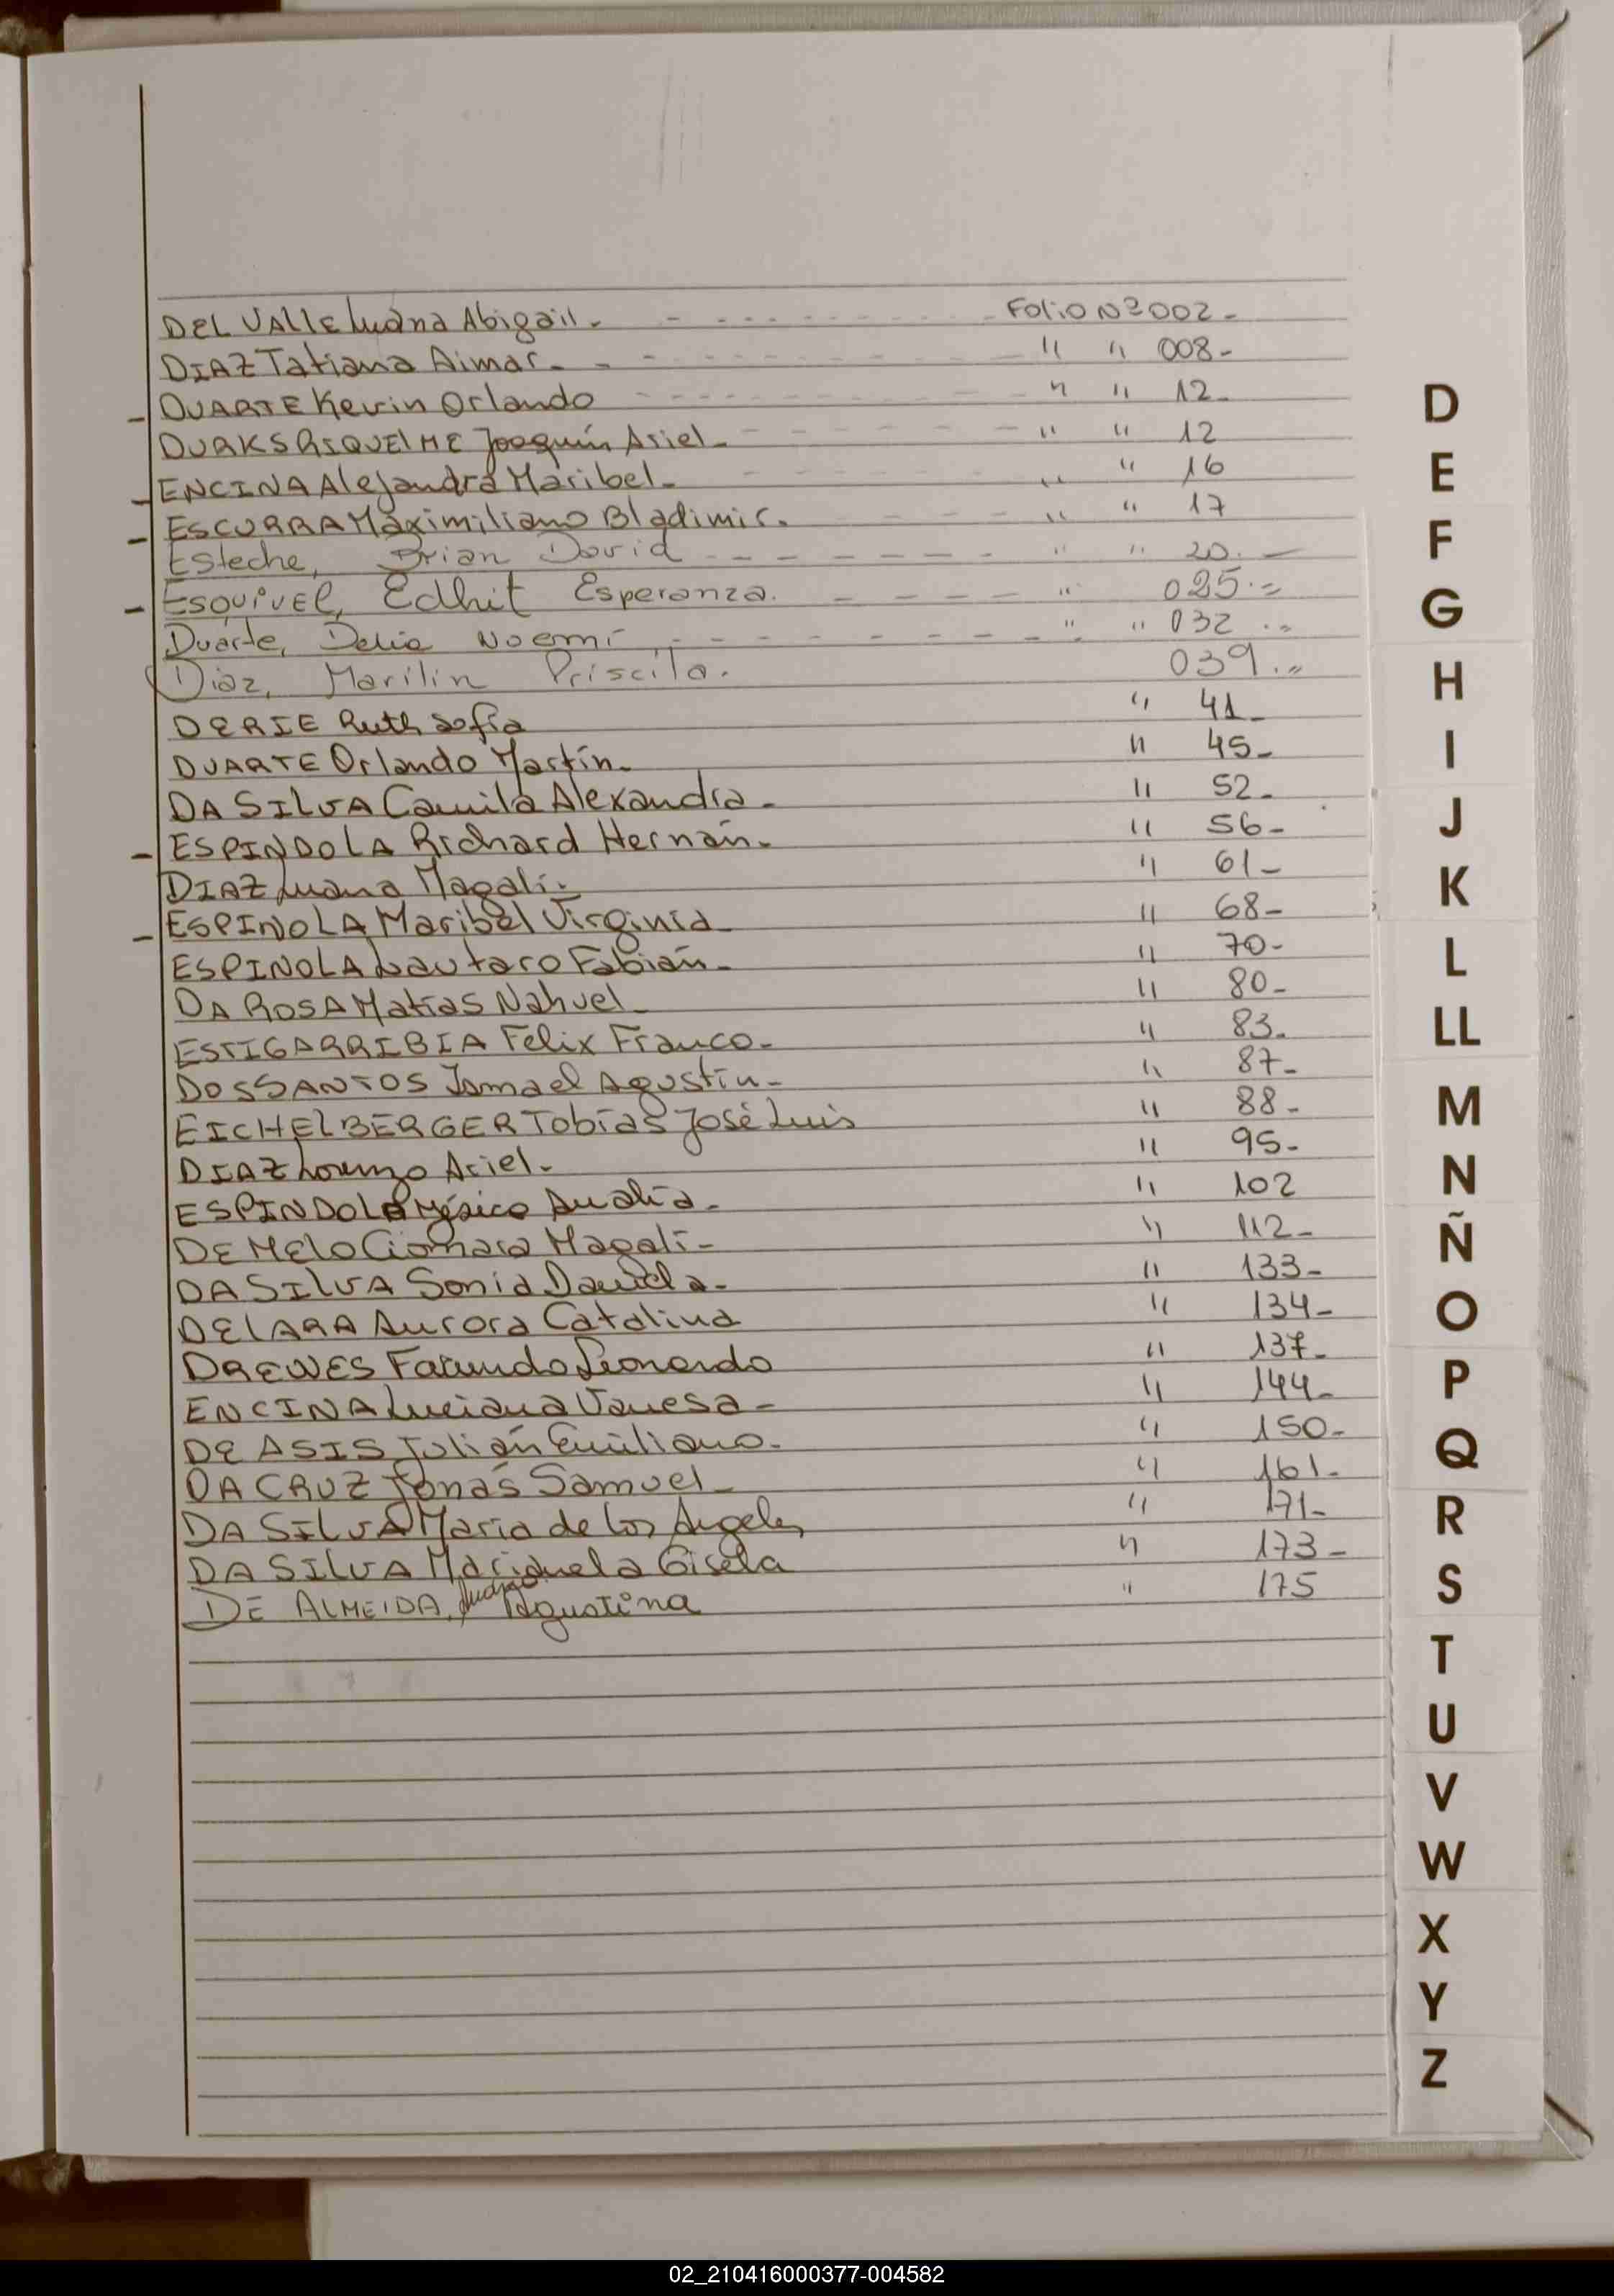 DEL VALLE Luana Abigail. - - - - - - - - - Folio Nº 002-
DIAZ Tatiana Aimar. - - - - - - - - - " " 008-
- DUARTE Kevin Orlando - - - - - - - - - " " 12-
DURKS RIQUELME Joaquín Ariel- - - - - - - " " 12
- ENCINA Alejandra Maribel- - - - - - " " 16
- ESCURRA Maximiliano Bladimir. - - - - " " 17
Esteche, Brian David - - - - - - - " " 20. -
- Esquivel, Edhit Esperanza. - - - - " 025.=
Duarte, Delia Noemí - - - - - - - - - " " 032 ..
Diaz, Marilin Priscila. 039..
DERIE Ruth Sofía " 41-
DUARTE Orlando Martín- " 45-
DA SILVA Camila Alexandra- " 52-
- ESPINDOLA Richard Hernán- " 56-
DIAZ Luana Magalí- " 61-
- ESPINOLA Maribel Virginia- " 68-
ESPINOLA Lautaro Fabián- " 70-
DA ROSA Matías Nahuel- " 80-
ESTIGARRIBIA Félix Franco- " 83-
DOS SANTOS Ismael Agustín- " 87-
EICHELBERGER Tobías José Luis " 88-
DIAZ Lorenzo Ariel- " 95-
ESPINDOLA Analía- " 102
DE MELO Ciomara Magalí- " 112-
DA SILVA Sonia Daniela- " 133-
DE LARA Aurora Catalina " 134-
DREWES Facundo Leonardo " 137-
ENCINA Luciana Vanesa- " 144-
DE ASIS Julián Emiliano- " 150-
DA CRUZ Jonás Samuel- " 161-
DA SILVA María de los Angeles " 171-
DA SILVA Marianela Gisela " 173-
DE ALMEIDA, Agustina " 175
D
E
F
G
H
I
J
K
L
LL
M
N
Ñ
O
P
Q
R
S
T
U
V
W
X
Y
Z
02_210416000377-004582